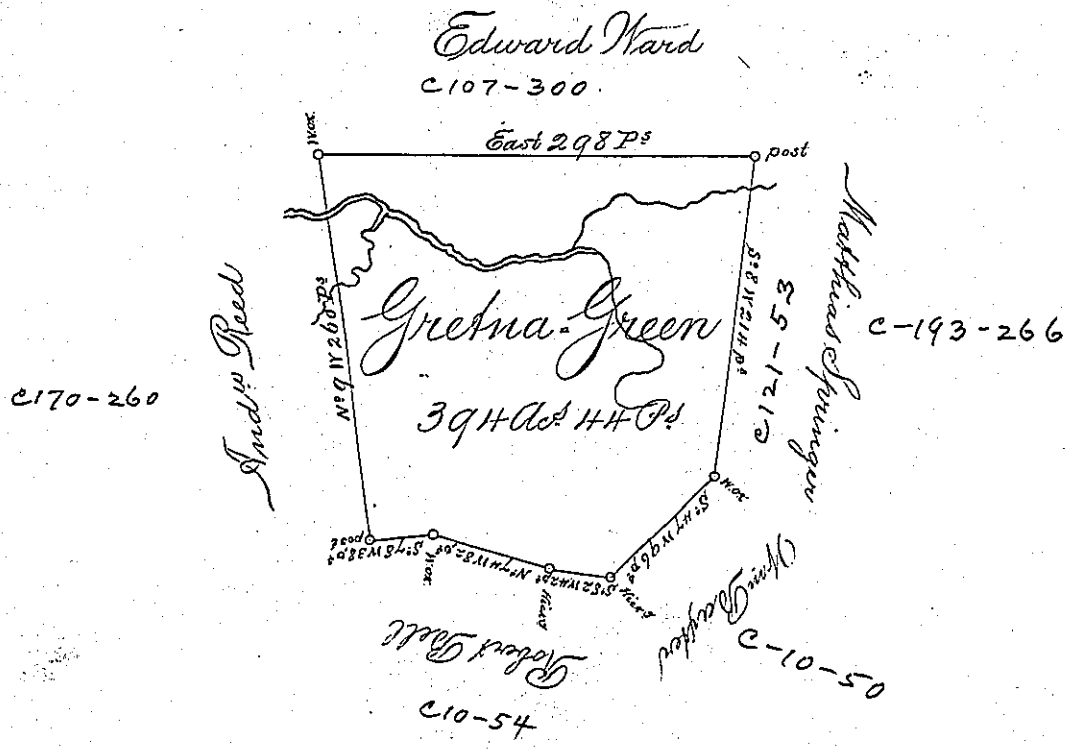 Edward Ward
C107-300.
W.ox.
East 298 Ps
post
Matthias Springer
C-193-266
So 8 W 214 ps
C121-53
Gretna-Green
394 As 44 Ps
No 9 W 269 Ps
Andw Reed
C170-260
W.ox
So 47 W 96 ps
Wm Bayterd
C-10-50
Hicry
So 82 W 42 ps
Hicry
No 74 W 82 ps
W.ox
So 78 W 38 ps
post
Robert Bell
C10-54